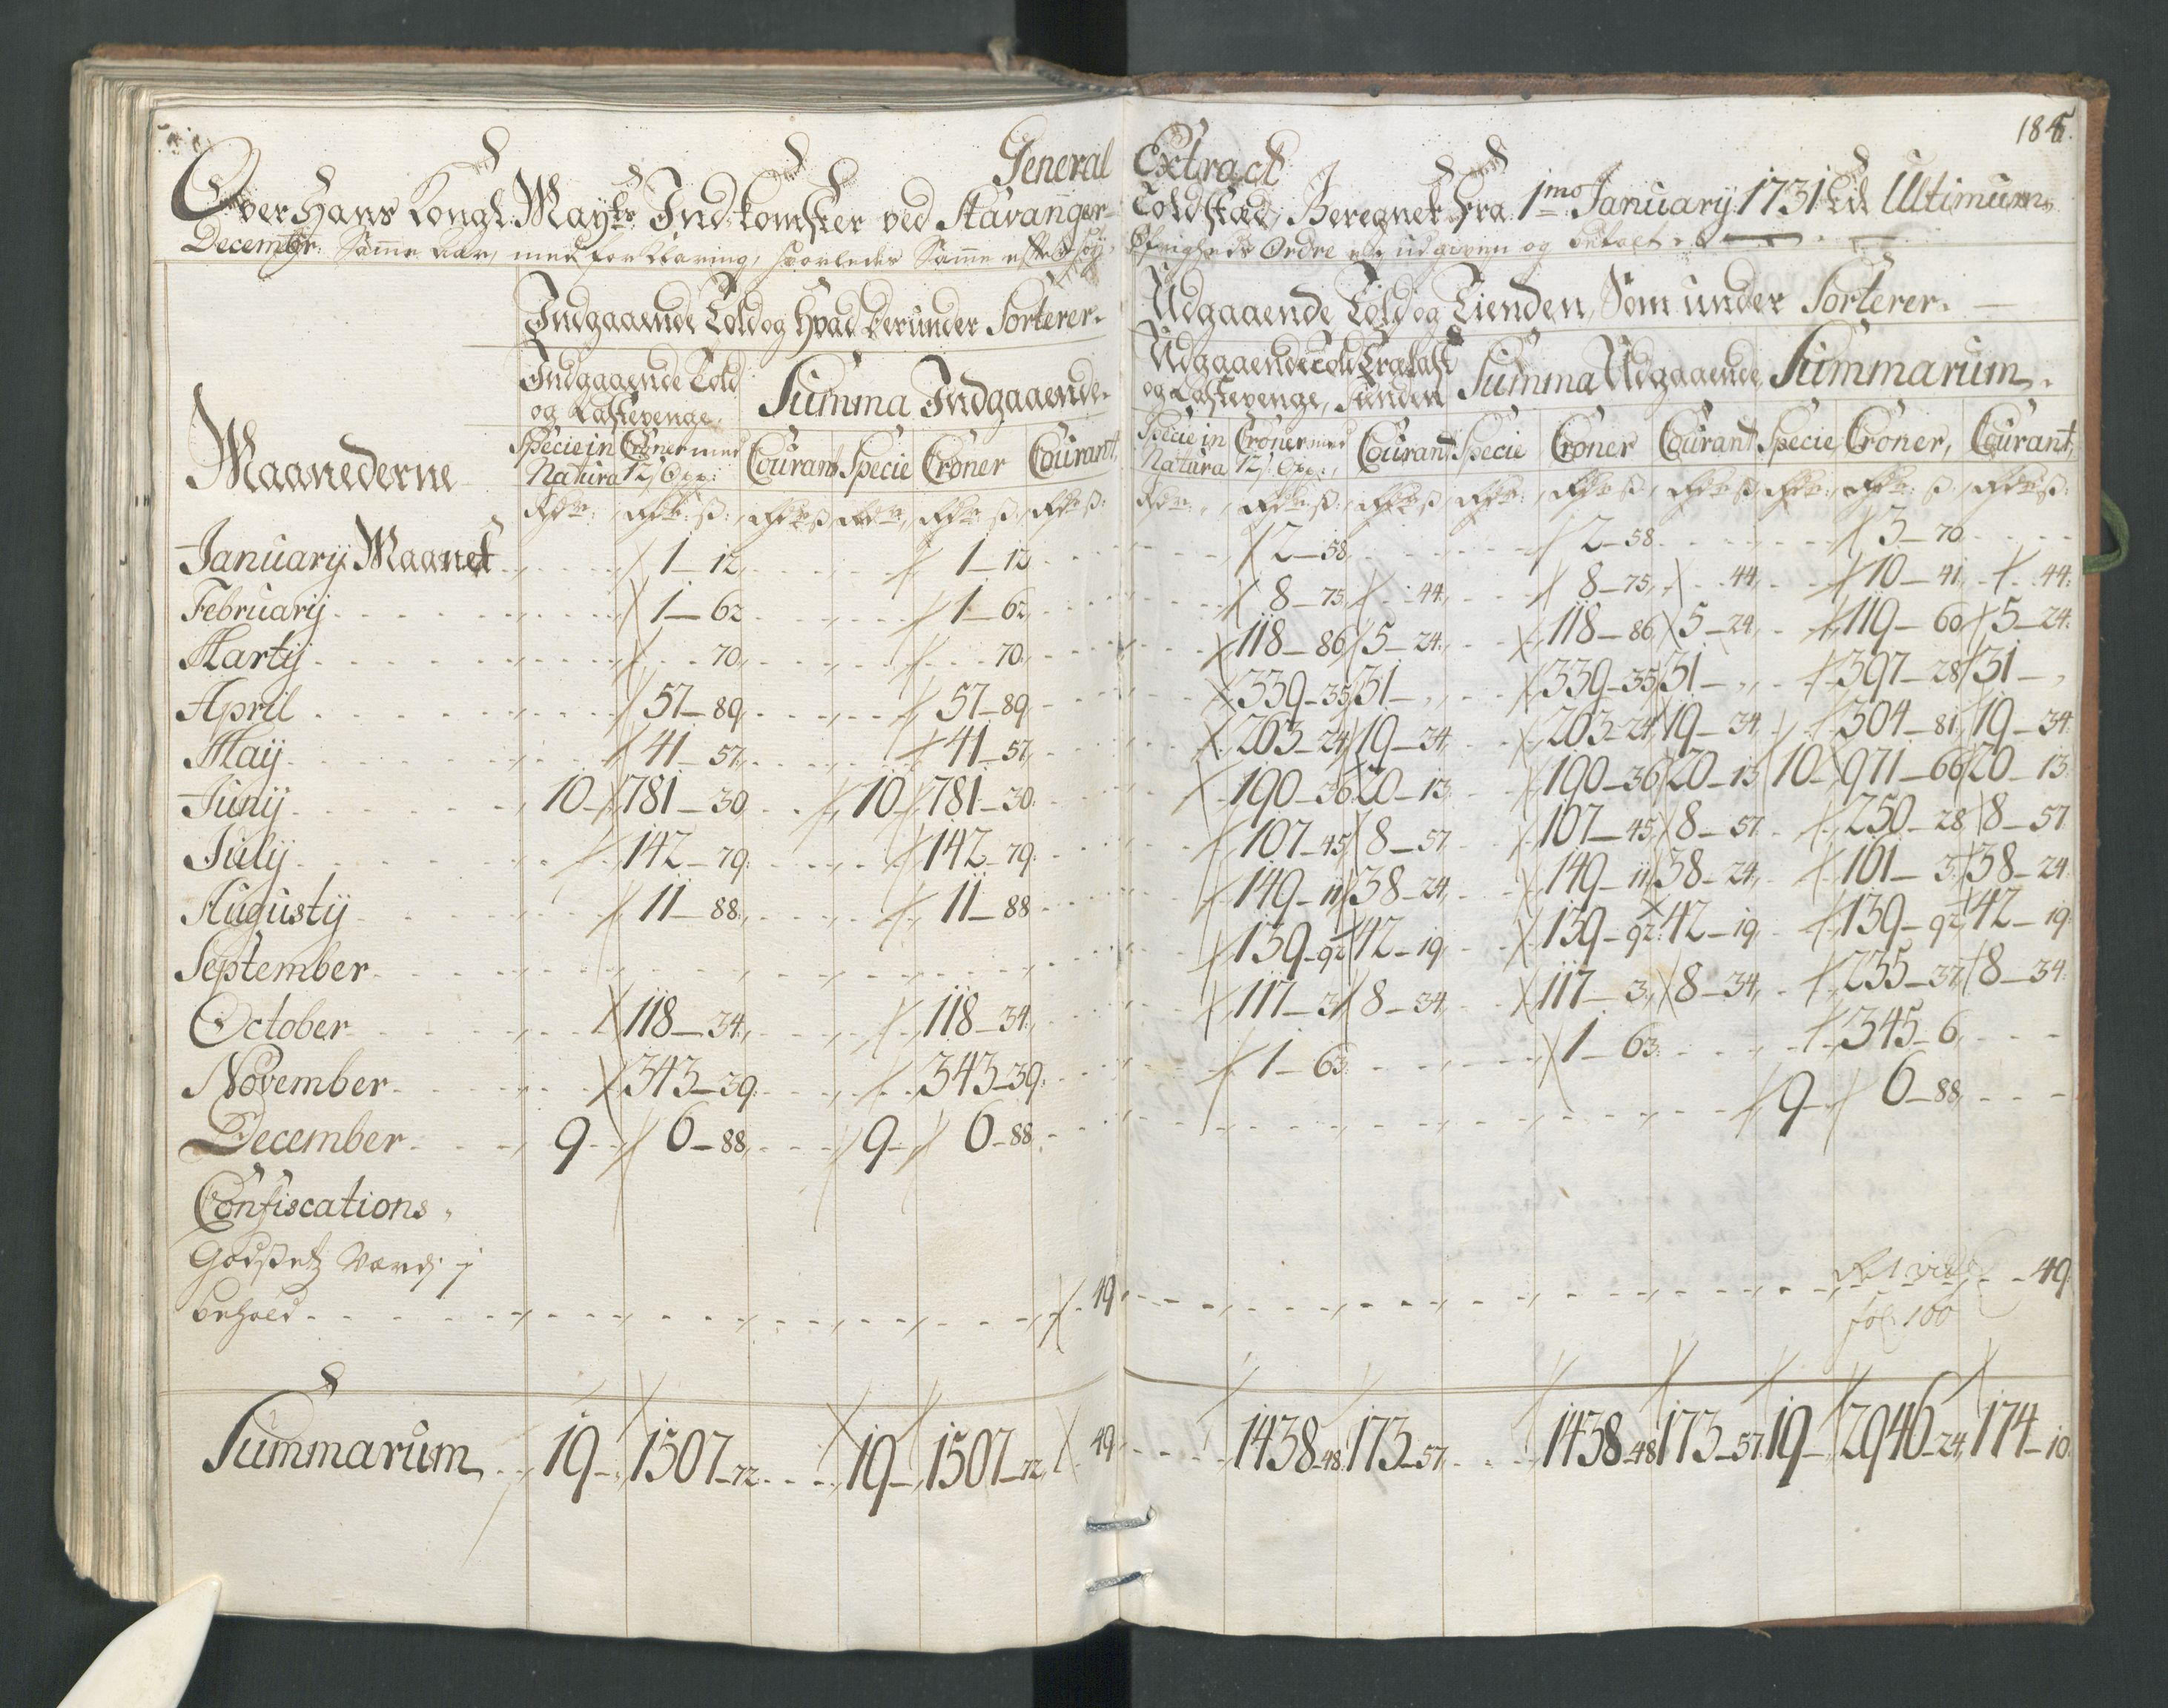 185.
General Extract
Over Hans Kongl. Mayts Indkomster ved Stavanger Toldsted, Beregnet fra 1mo January 1731 til Ultimum
Decembr: Samme Aar, med forklaring, hvorledes Samme efter høy Øfrigheds Ordre ere udgiven og betalt
Indgaaende Told og hvad derunder Sorterer. Udgaaende Told og Tienden, Som under Sorterer.
Indgaaende Told og Lastepenge, Summa Indgaaende. Udgaaende Told og Lastepenge, Summa Udgaaende, Summarum.
Maanederne Specie in Natura Croner med Courant Specie Croner Courant Specie in Natura Croner med Courant Specie Croner Courant Specie Croner, Courant,
January Maanet 1-12 1-12 2-58 2-58 3-70
February 1-62 1-62 8-75 44 8-75 44 10-41 44
Marty 70 70 118-86 5-24 118-86 5-24 119-60 5-24
April 57-89 57-89 339-35 31- 339-35 31- 397-28 31-
Maij 41-57 41-57 263-24 19-34 263-24 19-34 304-81 19-34
Junij 10 781-30 10 781-30 190-36 20-13 190-36 20-13 10 971-66 20-13
July 142-79 142-79 107-45 8-57 107-45 8-57 250-28 8-57
Augustij 11-88 11-88 149-11 38-24 149-11 38-24 161-3 38-24
September 139-92 42-19 139-92 42-19 139-92 42-19
October 118-34 118-34 117-3 8-34 117-3 8-34 235-37 8-34
November 343-39 343-39 1-63 1-63 345-6
December 9 6-88 9 6-88 9 6-88
Confiscations
Godsets Værdj i
behold 49 49
fol: 100
Summarum 19 1507-72 19 1507-72 49 1438-48 173-57 1438-48 173-57 19 2946-24 174-10